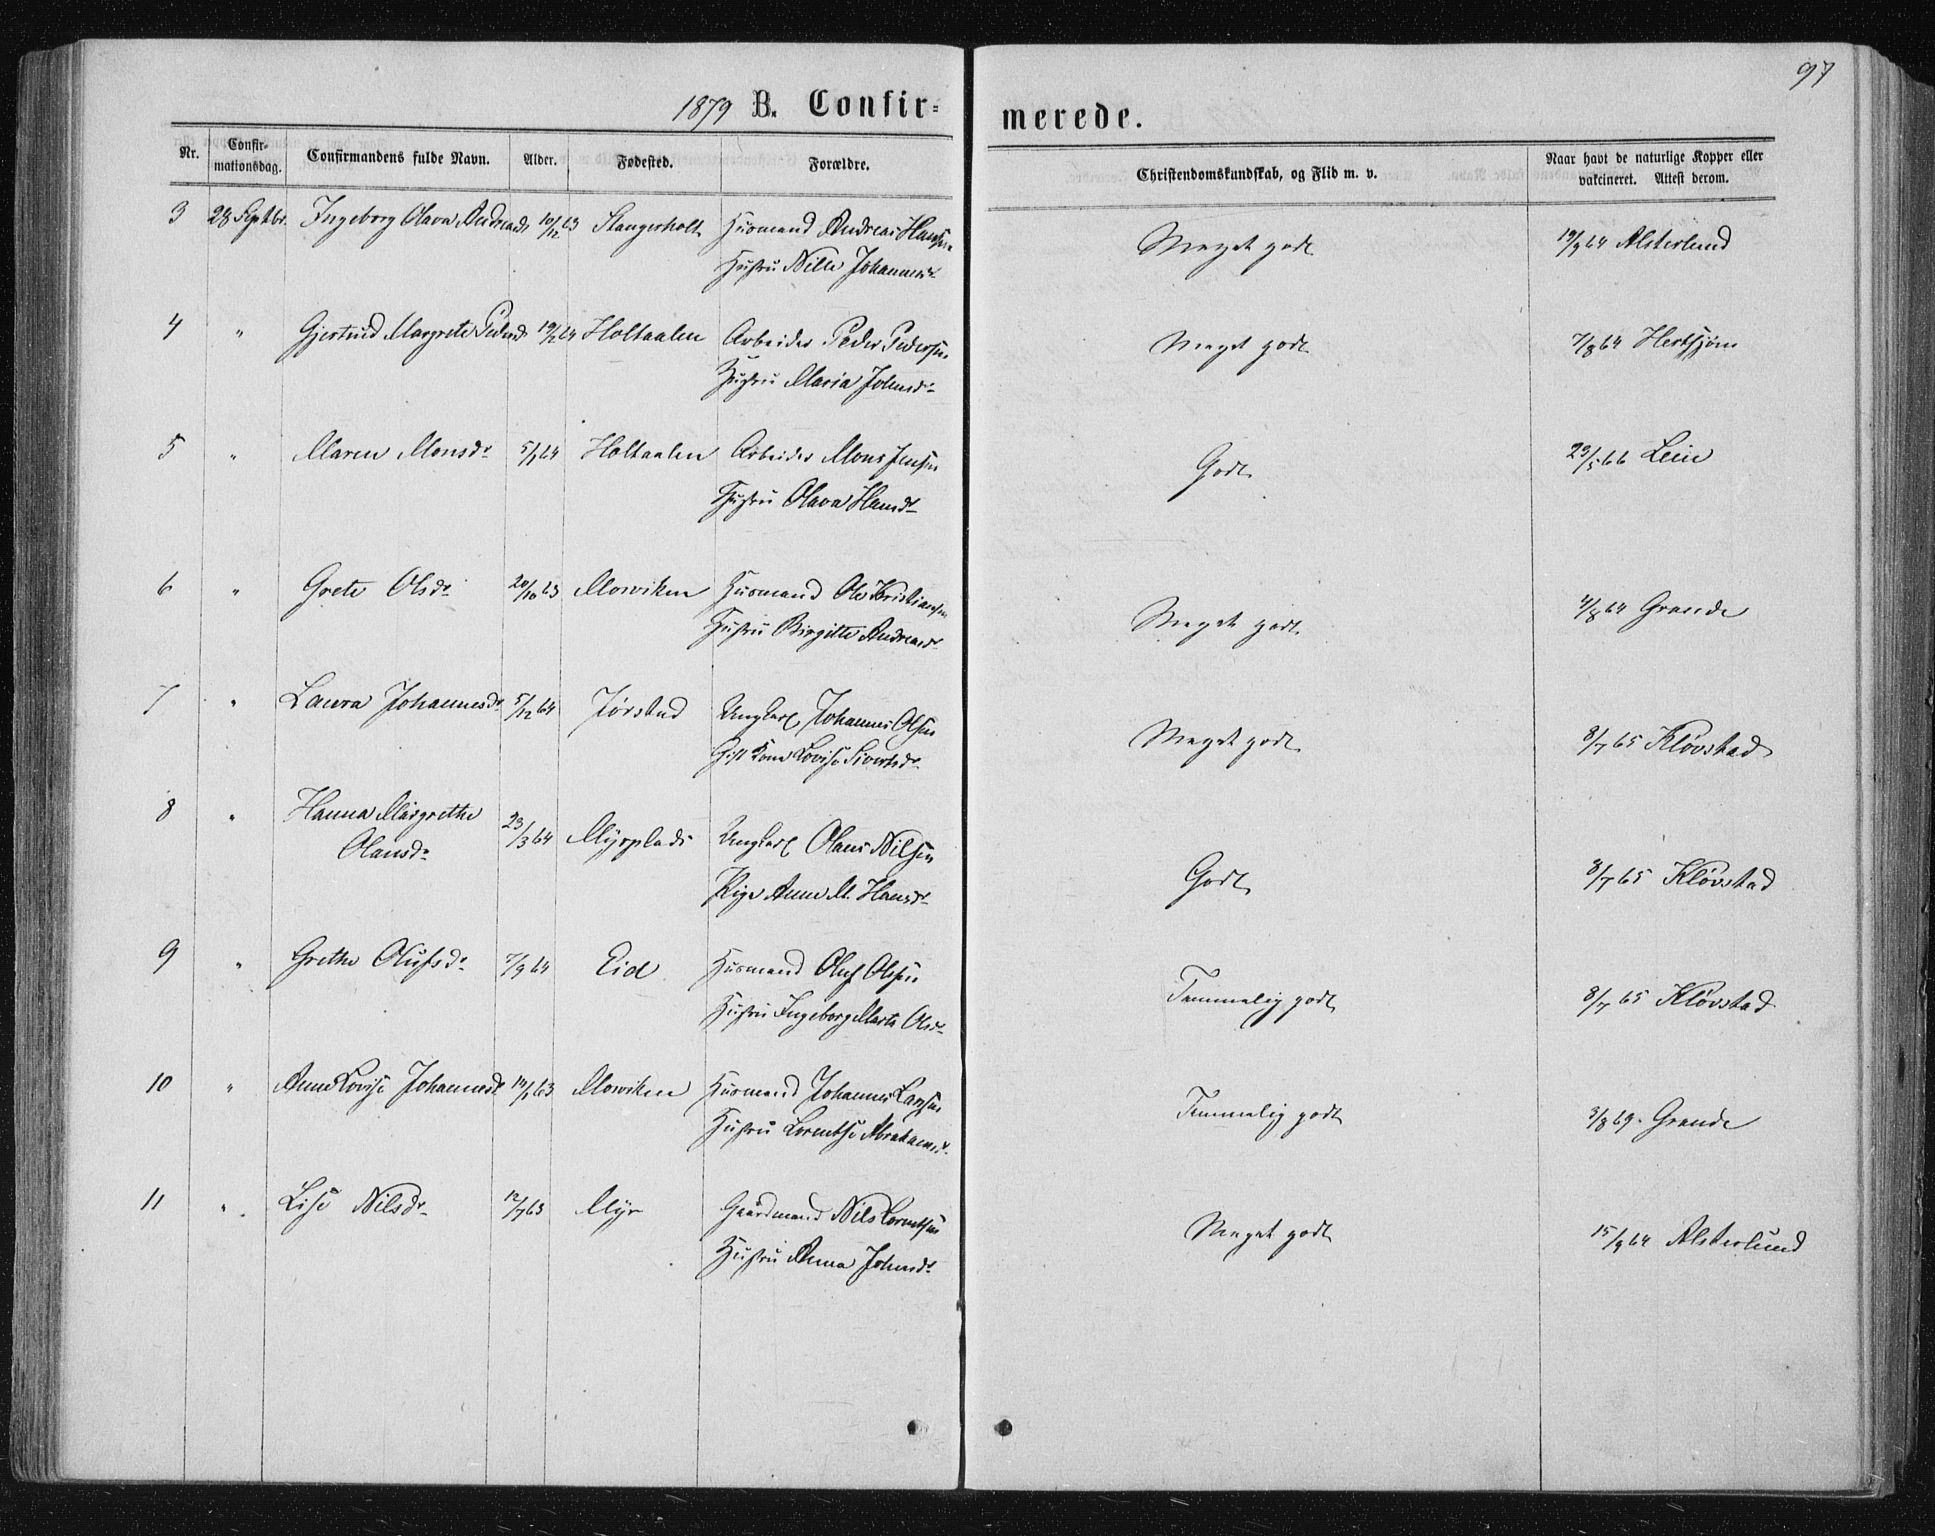 97
1879 B. Confir-
merede.
Nr. Confir-mationsdag. Confirmandens fulde Navn. Alder. Fødested. Forældre. Christendomskundskab, og Flid m. v. Naar havt de naturlige Kopper eller vakcineret. Attest derom.
3 28 Septbr. Ingeborg Olava Andreasdr 10/12 63 Stangerholt Husmand Andreas Hansen Meget godt 19/9 64 Alsterlund
Hustru Nille Johannesdr
4 " Gjertrud Margrete Pedersdr 19/2 64 Holtaalen Arbeider Peder Pedersen Meget godt 7/8 64
Hustru Maria Johnsdr
5 " Maren Monsdr 5/1 64 Holtaalen Arbeider Mons Jensen Godt 29/5 66 Lein
Hustru Olava Hansdr
6 " Grete Olsdr 20/10 63 Mowiken Husmand Ole Kristiansen Meget godt 4/8 64 Grande
Hustru Birgitte Andreasdr
7 " Laura Johannesdr 5/12 64 Jørstad Ungkarl Johannes Olsen Meget godt 8/7 65 Kløvstad
Gift Kone Lovise Sivertsdr
8 " Hanna Margrethe 23/3 64 Myrplads Ungkarl Olaus Nilsen Godt 8/7 65 Kløvstad
Olausdr
Pige Anne M. Hansdr
9 " Grethe Olufsdr 7/9 64 Eid Husmand Oluf Olsen Temmelig godt 8/7 65 Kløvstad
Hustru Ingeborg Marta Olsdr
10 " Anne Lovise Johannesdr 14/1 63 Mowiken Husmand Johannes Larsen Temmelig godt 3/8 69. Grande
Hustru Lorentse Abrahamsdr.
11 " Lise Nilsdr 12/7 63 Myr Gaardmand Nils Lorentsen Meget godt 15/9 64 Alsterlund
Hustru Anna Johnsdr